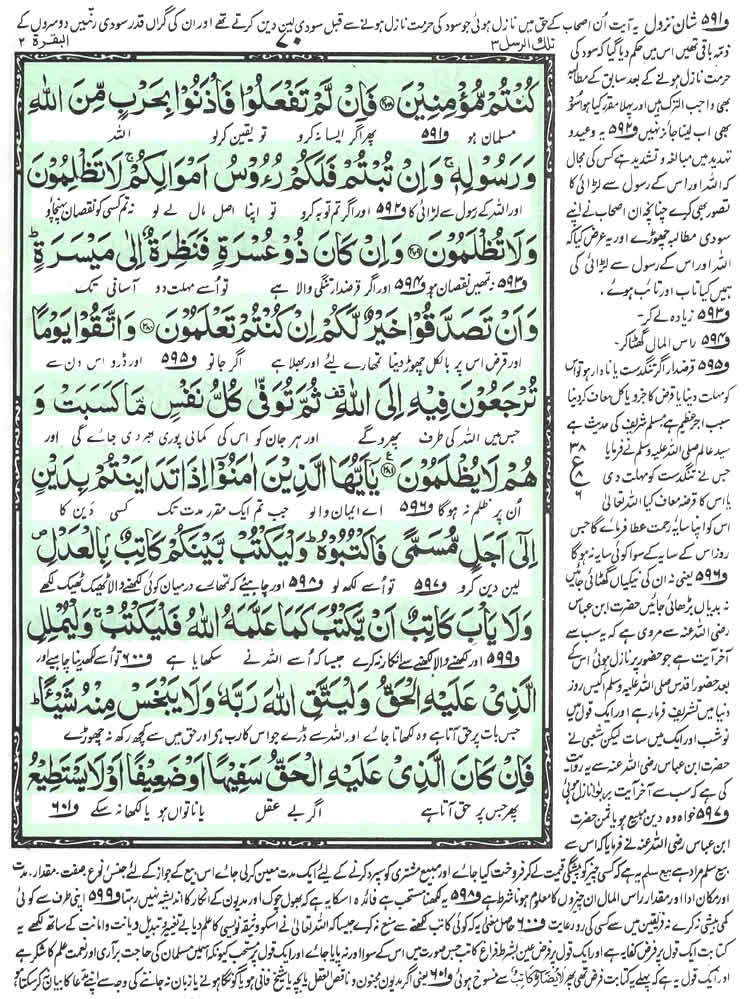 و۵۹۱ شان نزول یہ آیت اُن اصحاب کے حق میں نازل ہوئی جو سود کی حرمت نازل ہونے سے قبل سودی لین دین کرتے تھے اور ان کی گراں قدر سودی رقمیں دوسروں کے
البقرة ۲
۷۰
تلك الرسل ۳
كُنْتُمْ مُّؤْمِنِيْنَ ۝ فَاِنْ لَّمْ تَفْعَلُوْا فَاْذَنُوْا بِحَرْبٍ مِّنَ اللّٰهِ
مسلمان ہو و۵۹۱ پھر اگر ایسا نہ کرو تو یقین کرلو اللہ
وَرَسُوْلِهٖ ۚ وَاِنْ تُبْتُمْ فَلَكُمْ رُءُوْسُ اَمْوَالِكُمْ ۚ لَا تَظْلِمُوْنَ
اور اللہ کے رسول سے لڑائی کا و۵۹۲ اور اگر تم توبہ کرو تو اپنا اصل مال لے لو نہ تم کسی کو نقصان پہنچاؤ
وَلَا تُظْلَمُوْنَ ۝ وَاِنْ كَانَ ذُوْ عُسْرَةٍ فَنَظِرَةٌ اِلٰى مَيْسَرَةٍ ؕ
و۵۹۳ نہ تمہیں نقصان ہو و۵۹۴ اور اگر قرضدار تنگی والا ہے تو اُسے مہلت دو آسانی تک
وَاَنْ تَصَدَّقُوْا خَيْرٌ لَّكُمْ اِنْ كُنْتُمْ تَعْلَمُوْنَ ۝ وَاتَّقُوْا يَوْمًا
اور قرض اس پر بالکل چھوڑ دینا تمہارے لئے اور بھلا ہے اگر جانو و۵۹۵ اور ڈرو اس دن سے
تُرْجَعُوْنَ فِيْهِ اِلَى اللّٰهِ ۗ ثُمَّ تُوَفّٰى كُلُّ نَفْسٍ مَّا كَسَبَتْ وَ
جس میں اللہ کی طرف پھرو گے اور ہر جان کو اس کی کمائی پوری بھر دی جائے گی اور
هُمْ لَا يُظْلَمُوْنَ ۝ يٰۤاَيُّهَا الَّذِيْنَ اٰمَنُوْۤا اِذَا تَدَايَنْتُمْ بِدَيْنٍ
اُن پر ظلم نہ ہوگا و۵۹۶ اے ایمان والو جب تم ایک مقرر مدت تک کسی دین کا
اِلٰۤى اَجَلٍ مُّسَمًّى فَاكْتُبُوْهُ ؕ وَلْيَكْتُبْ بَّيْنَكُمْ كَاتِبٌۢ بِالْعَدْلِ ۪
لین دین کرو و۵۹۷ تو اُسے لکھ لو و۵۹۸ اور چاہیئے کہ تمہارے درمیان کوئی لکھنے والا ٹھیک ٹھیک لکھے
وَلَا يَاْبَ كَاتِبٌ اَنْ يَّكْتُبَ كَمَا عَلَّمَهُ اللّٰهُ فَلْيَكْتُبْ ۚ وَلْيُمْلِلِ
و۵۹۹ اور لکھنے والا لکھنے سے انکار نہ کرے جیسا کہ اُسے اللہ نے سکھایا ہے و۶۰۰ تو اُسے لکھ دینا چاہیئے اور
الَّذِيْ عَلَيْهِ الْحَقُّ وَلْيَتَّقِ اللّٰهَ رَبَّهٗ وَلَا يَبْخَسْ مِنْهُ شَيْـًٔا ؕ
جس بات پر حق آتا ہے وہ لکھاتا جائے اور اللہ سے ڈرے جو اس کا رب ہے اور حق میں سے کچھ رکھ نہ چھوڑے
فَاِنْ كَانَ الَّذِيْ عَلَيْهِ الْحَقُّ سَفِيْهًا اَوْ ضَعِيْفًا اَوْ لَا يَسْتَطِيْعُ
پھر جس پر حق آتا ہے اگر بے عقل یا ناتواں ہو یا لکھا نہ سکے و۶۰۱
ذمہ باقی تھیں اس میں حکم دیا گیا کہ سود کی
حرمت نازل ہونے کے بعد سابق کے مطالبے
بھی واجب الترک ہیں اور پہلا مقرر کیا ہوا سود
بھی اب لینا جائز نہیں و۵۹۲ یہ وعید و
تہدید میں مبالغہ و تشدید ہے کس کی مجال
کہ اللہ اور اس کے رسول سے لڑائی کا
تصور بھی کرے چنانچہ ان اصحاب نے اپنے
سودی مطالبہ چھوڑے اور یہ عرض کیا کہ
اللہ اور اس کے رسول سے لڑائی کی
ہمیں کیا تاب اور تائب ہوئے۔
و۵۹۳ زیادہ لے کر۔
و۵۹۴ راس المال گھٹا کر۔
و۵۹۵ قرضدار اگر تنگدست یا نادار ہو تو اس
کو مہلت دینا یا قرض کا جزو یا کل معاف کر دینا
سبب اجر عظیم ہے مسلم شریف کی حدیث ہے
سید عالم صلی اللہ علیہ وسلم نے فرمایا
جس نے تنگدست کو مہلت دی
یا اس کا قرضہ معاف کیا اللہ تعالیٰ
اس کو اپنا سایۂ رحمت عطا فرمائے گا جس
روز اس کے سایہ کے سوا کوئی سایہ نہ ہوگا
و۵۹۶ یعنی نہ ان کی نیکیاں گھٹائی جائیں
نہ بدیاں بڑھائی جائیں حضرت ابن عباس
رضی اللہ عنہ سے مروی ہے کہ یہ سب سے
آخر آیت ہے جو حضور پر نازل ہوئی اس کے
بعد حضور اقدس صلی اللہ علیہ وسلم اکیس روز
دنیا میں تشریف فرما رہے اور ایک قول میں
نو شب اور ایک میں سات لیکن شعبی نے
حضرت ابن عباس رضی اللہ عنہ سے یہ روایت
کی ہے کہ سب سے آخر آیت ربوٰ نازل ہوئی
و۵۹۷ خواہ وہ دین مبیع ہو یا ثمن حضرت
ابن عباس رضی اللہ عنہ نے فرمایا کہ اس سے
۳۸
ع
۸
۶
بیع سلم مراد ہے بیع سلم یہ ہے کہ کسی چیز کو پیشگی قیمت لے کر فروخت کیا جائے اور مبیع مشتری کو سپرد کرنے کے لئے ایک مدت معین کر لی جائے اس بیع کے جواز کے لئے جنس نوع صفت۔ مقدار۔ مدت
اور مکان ادا اور مقدار راس المال ان چیزوں کا معلوم ہونا شرط ہے و۵۹۸ یہ لکھنا مستحب ہے فائدہ اس کا یہ ہے کہ بھول چوک اور مدیون کے انکار کا اندیشہ نہیں رہتا و۵۹۹ اپنی طرف سے کوئی
کمی بیشی نہ کرے نہ فریقین میں سے کسی کی رو رعایت و۶۰۰ حاصل معنی یہ کہ کوئی کاتب لکھنے سے منع نہ کرے جیسا کہ اللہ تعالیٰ نے اسکو وثیقہ نویسی کا علم دیا بے تغییر و تبدیل دیانت و امانت کے ساتھ لکھے یہ
کتابت ایک قول پر فرض کفایہ ہے اور ایک قول پر فرض عین بشرط فراغ کاتب جس صورت میں اس کے سوا اور نہ پایا جائے اور ایک قول پر مستحب کیونکہ اسمیں مسلمان کی حاجت برآری اور نعمت علم کا شکر ہے
اور ایک قول یہ ہے کہ پہلے یہ کتابت فرض تھی پھر لَا يُضَآرَّ كَاتِبٌ سے منسوخ ہوئی و۶۰۱ یعنی اگر مدیون مجنون و ناقص العقل یا بچہ یا شیخ فانی ہو یا گونگا ہونے یا زبان نہ جاننے کی وجہ سے اپنے مدعا کا بیان نہ کر سکتا ہو